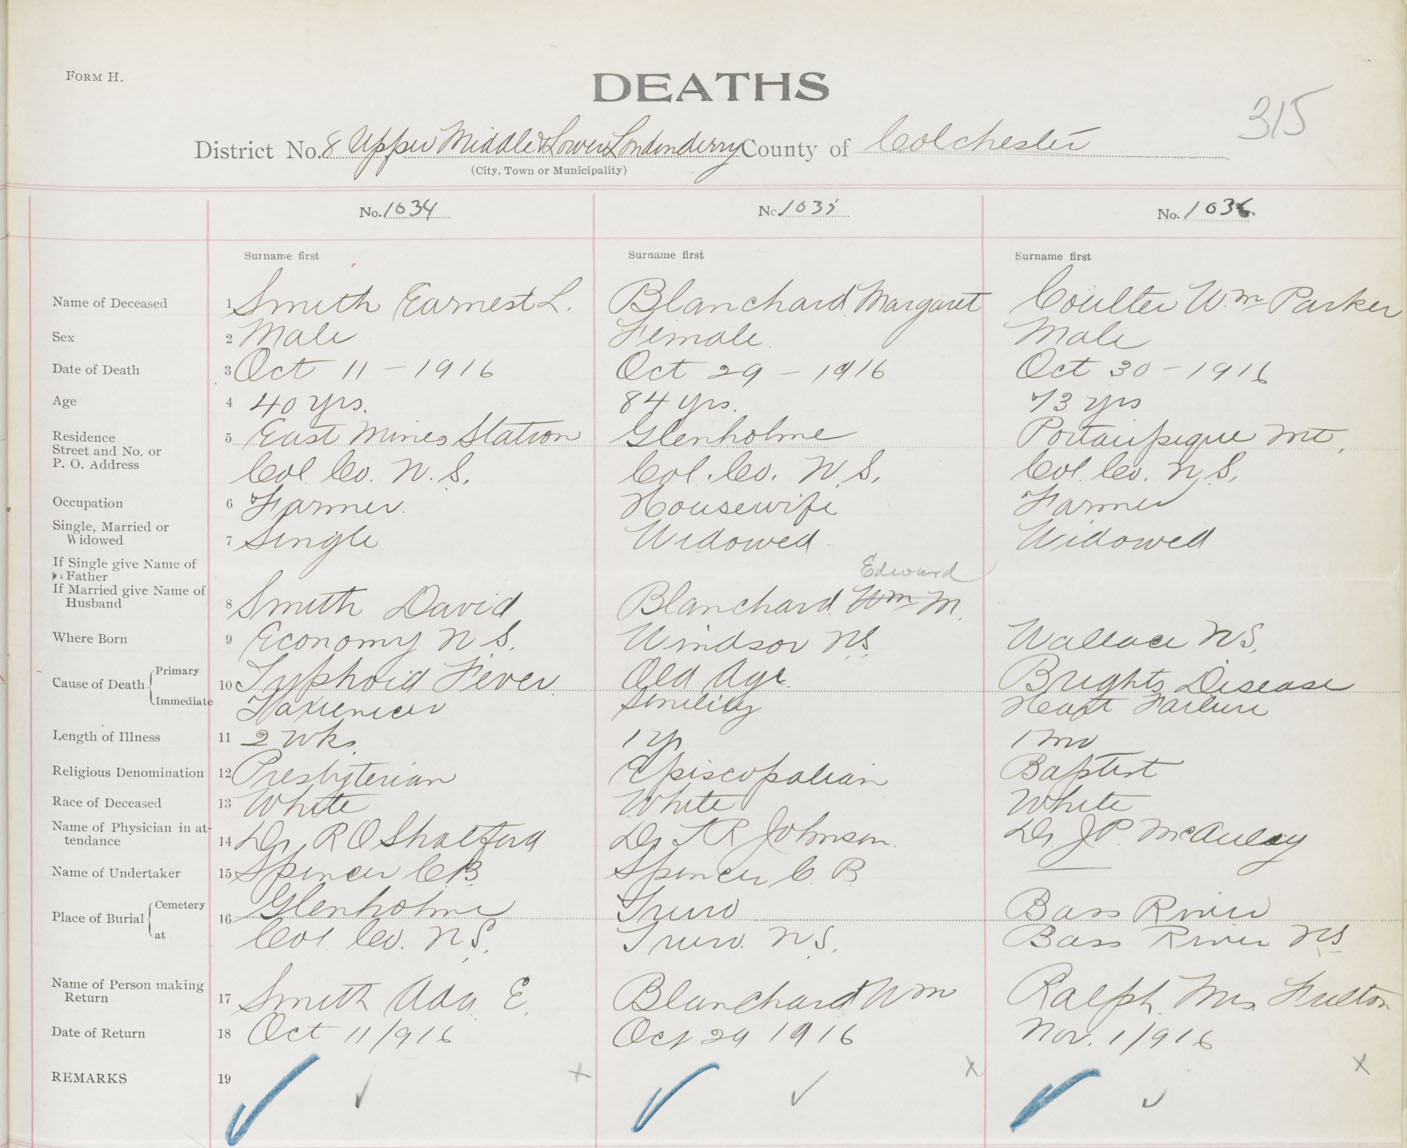 FORM H.
DEATHS
315
District No. 8 Upper Middle & Lower Londonderry County of Colchester
(City, Town or Municipality)
No. 1034 No. 1035 No. 1036
Surname first Surname first Surname first
Name of Deceased 1 Smith Earnest L. Blanchard Margaret Coulter Wm Parker
Sex 2 Male Female Male
Date of Death 3 Oct 11 - 1916 Oct 29 - 1916 Oct 30 - 1916
Age 4 40 yrs. 84 yrs. 73 yrs
Residence
Street and No. or
P. O. Address
5 East Mines Station Glenholme Portaupique Mt,
Col. Co. N. S. Col. Co. N. S. Col. Co. N. S.
Occupation 6 Farmer Housewife Farmer
Single, Married or
Widowed
7 Single Widowed Widowed
If Single give Name of
Father
If Married give Name of
Husband
Edward
8 Smith David Blanchard Wm M.
Where Born 9 Economy N S. Windsor NS Wallace NS.
Cause of Death Primary 10 Typhoid Fever Old Age Brights Disease
Immediate Senility Heart Failure
Length of Illness 11 2 wks. 1 yr 1 mo
Religious Denomination 12 Presbyterian Episcopalian Baptist
Race of Deceased 13 White White White
Name of Physician in at-
tendance
14 Dr. R O Shatford Dr T R Johnson Dr. J P. McAulay
Name of Undertaker 15 Spencer C B Spencer C. B.
Place of Burial Cemetery 16 Glenholme Truro Bass River
at Col. Co. N S. Truro. N S. Bass River NS
Name of Person making
Return
17 Smith Ada E. Blanchard Wm Ralph Mrs Fulton
Date of Return 18 Oct 11/916 Oct 29 1916 Nov. 1/916
REMARKS 19